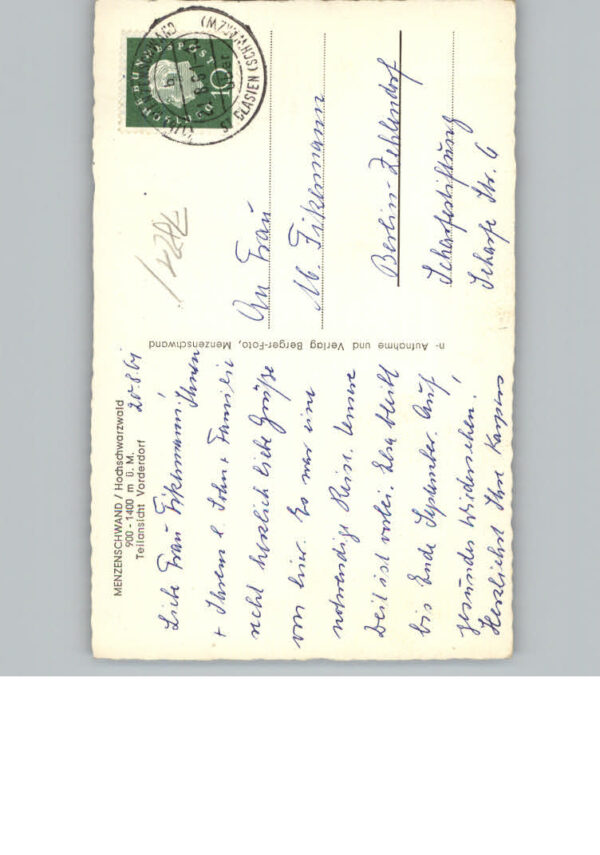 MENZENSCHWAND / Hochschwarzwald
900 - 1400 m ü. M.
Teilansicht Vorderdorf
20.8.61
Liebe Frau Fikenmann! Ihnen
+ Ihrem l. Sohn + Familie
recht herzlich liebe Grüße
von hier. Es war eine
notwendige Reise. Unsere
Zeit ist vorbei. Elsa bleibt
bis Ende September. Auf
gesundes Wiedersehen!
Herzlichst Ihre Kaspers
n- Aufnahme und Verlag Berger-Foto, Menzenschwand
An Frau
M. Fikenmann
Berlin-Zehlendorf
Scharfestiftung
Scharfe Str. 6
DEUTSCHE BUNDESPOST
10
ST. BLASIEN (SCHWARZW)